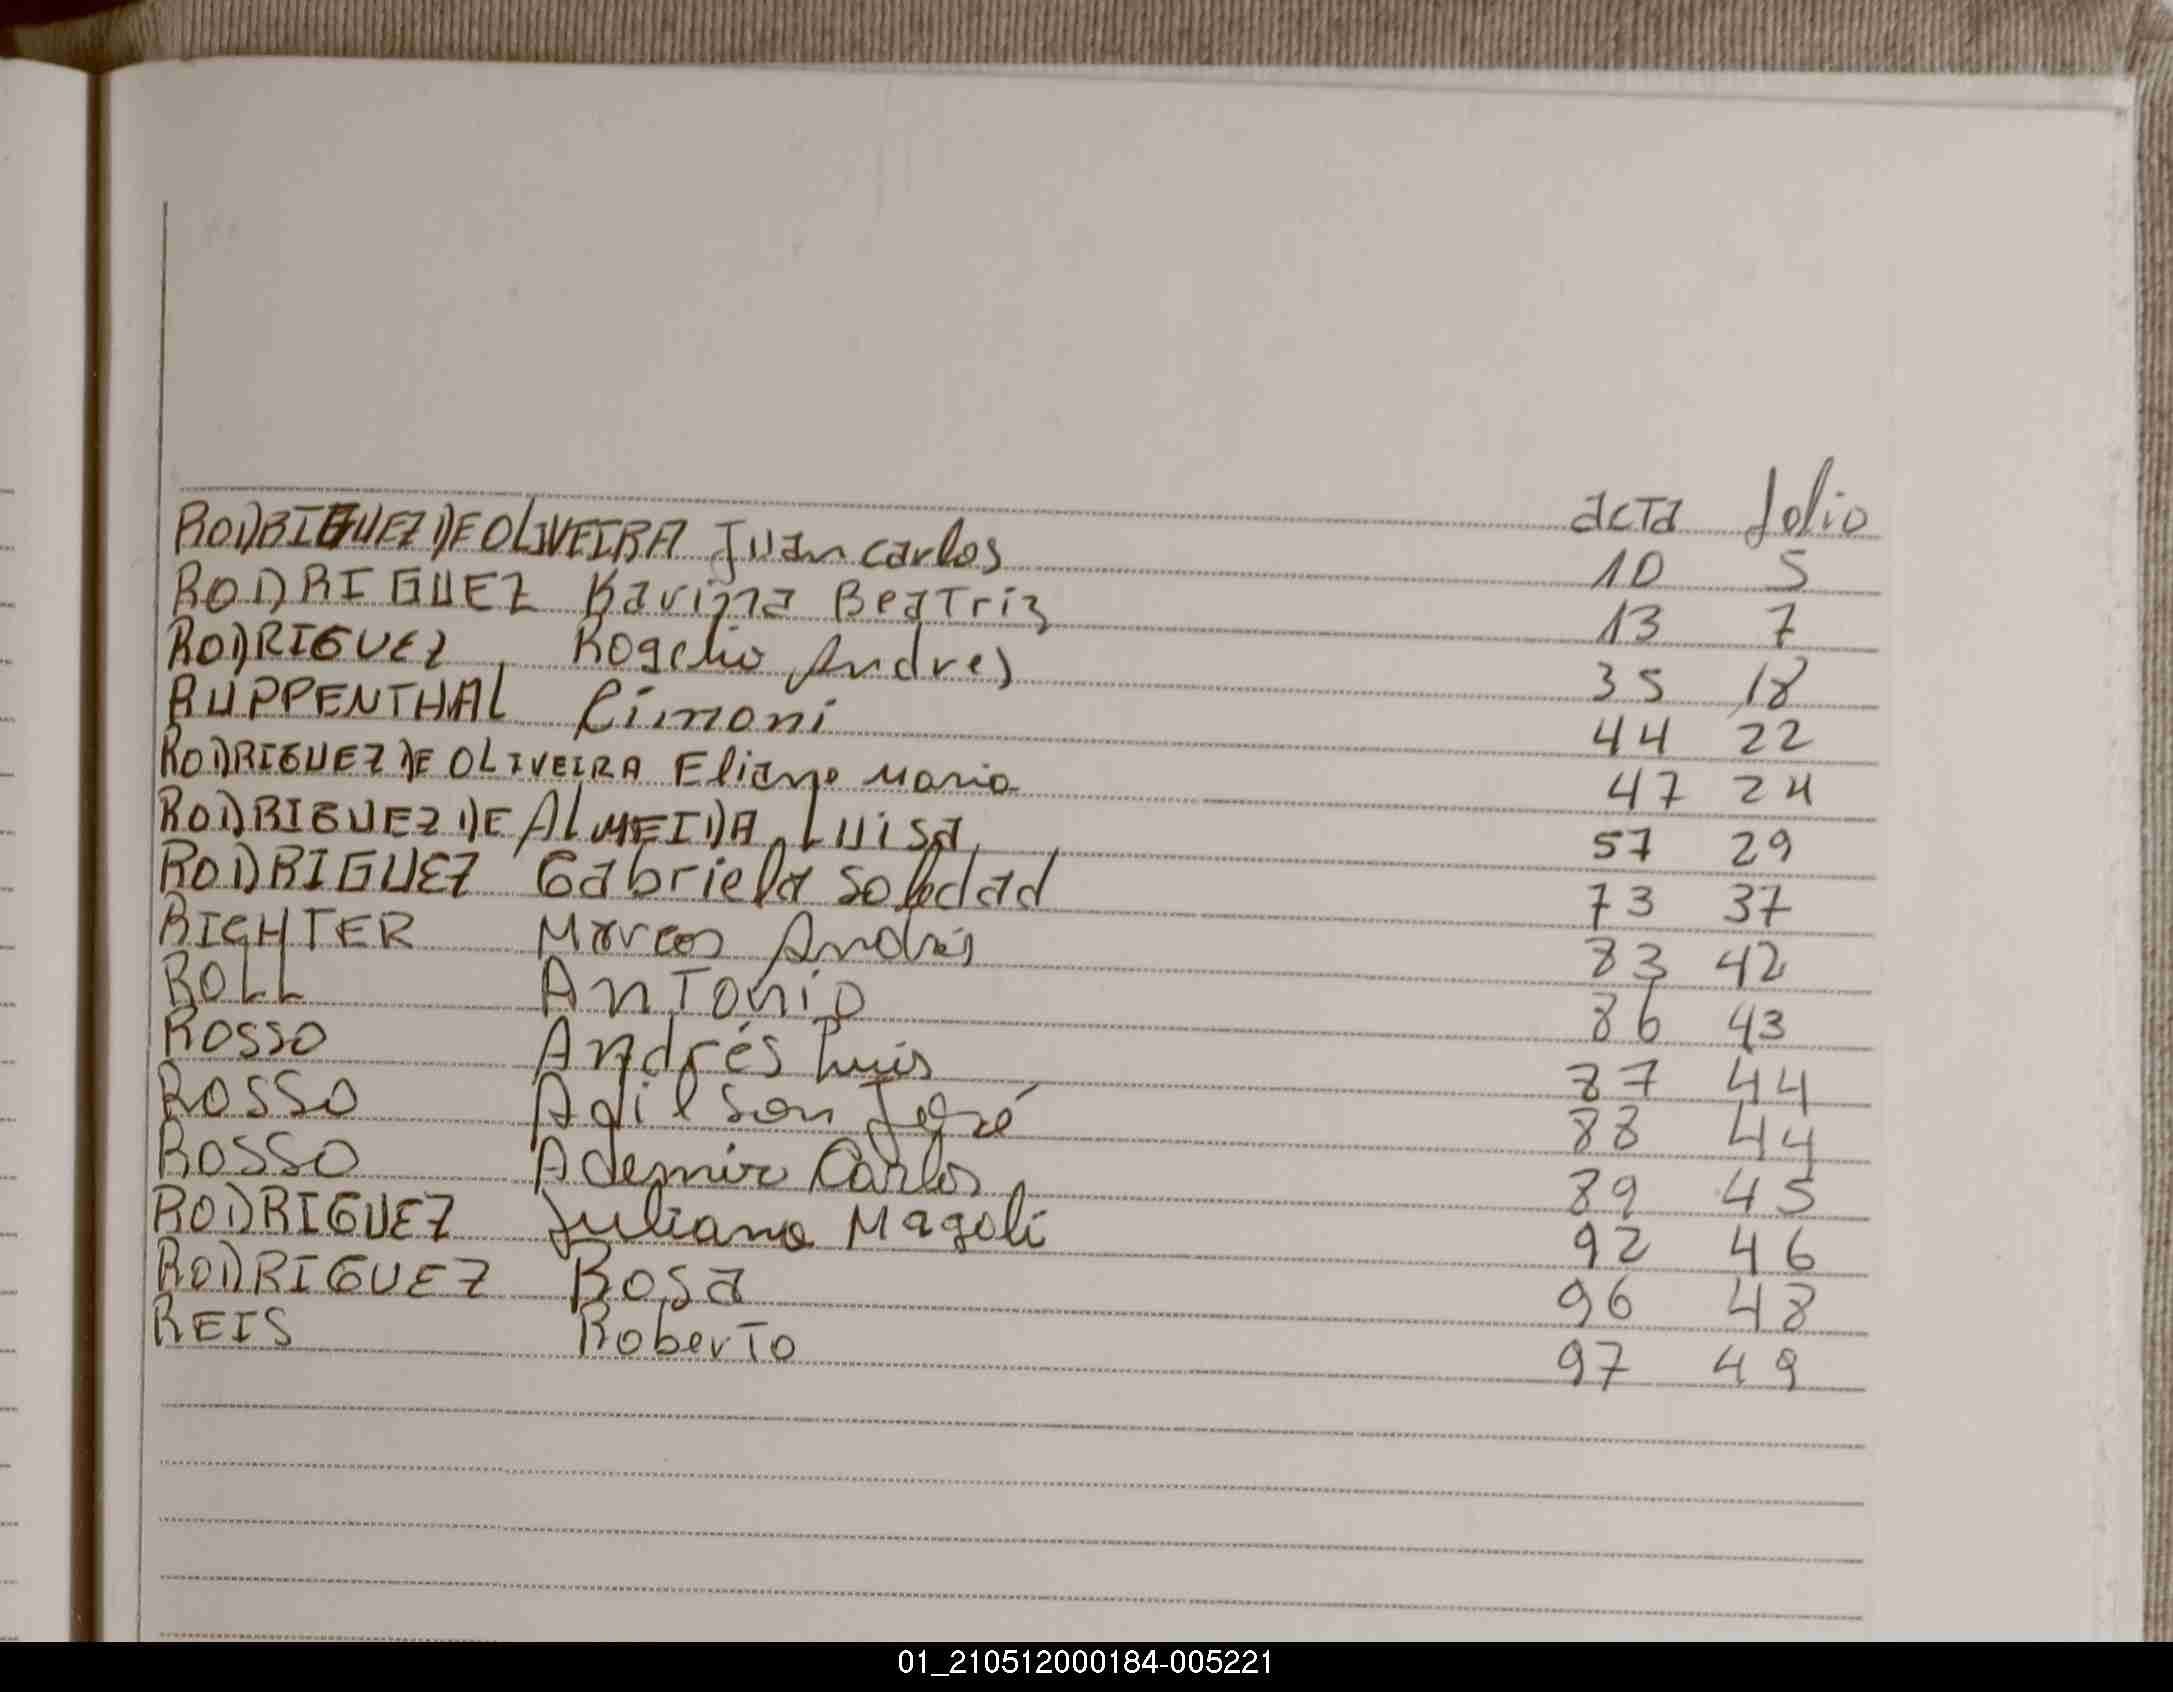 acta folio
RODRIGUEZ DE OLIVEIRA Juan carlos 10 5
RODRIGUEZ Karina Beatriz 13 7
RODRIGUEZ Rogelio Andres 35 18
RUPPENTHAL Cimoni 44 22
RODRIGUEZ DE OLIVEIRA Eliane Maria 47 24
RODRIGUEZ DE ALMEIDA Luisa 57 29
RODRIGUEZ Gabriela Soledad 73 37
RICHTER Marcos Andrés 83 42
ROLL Antonio 86 43
ROSSO Andrés Luis 87 44
ROSSO Adilson José 88 44
ROSSO Ademir Carlos 89 45
RODRIGUEZ Juliana Magali 92 46
RODRIGUEZ Rosa 96 48
REIS Roberto 97 49
01_210512000184-005221